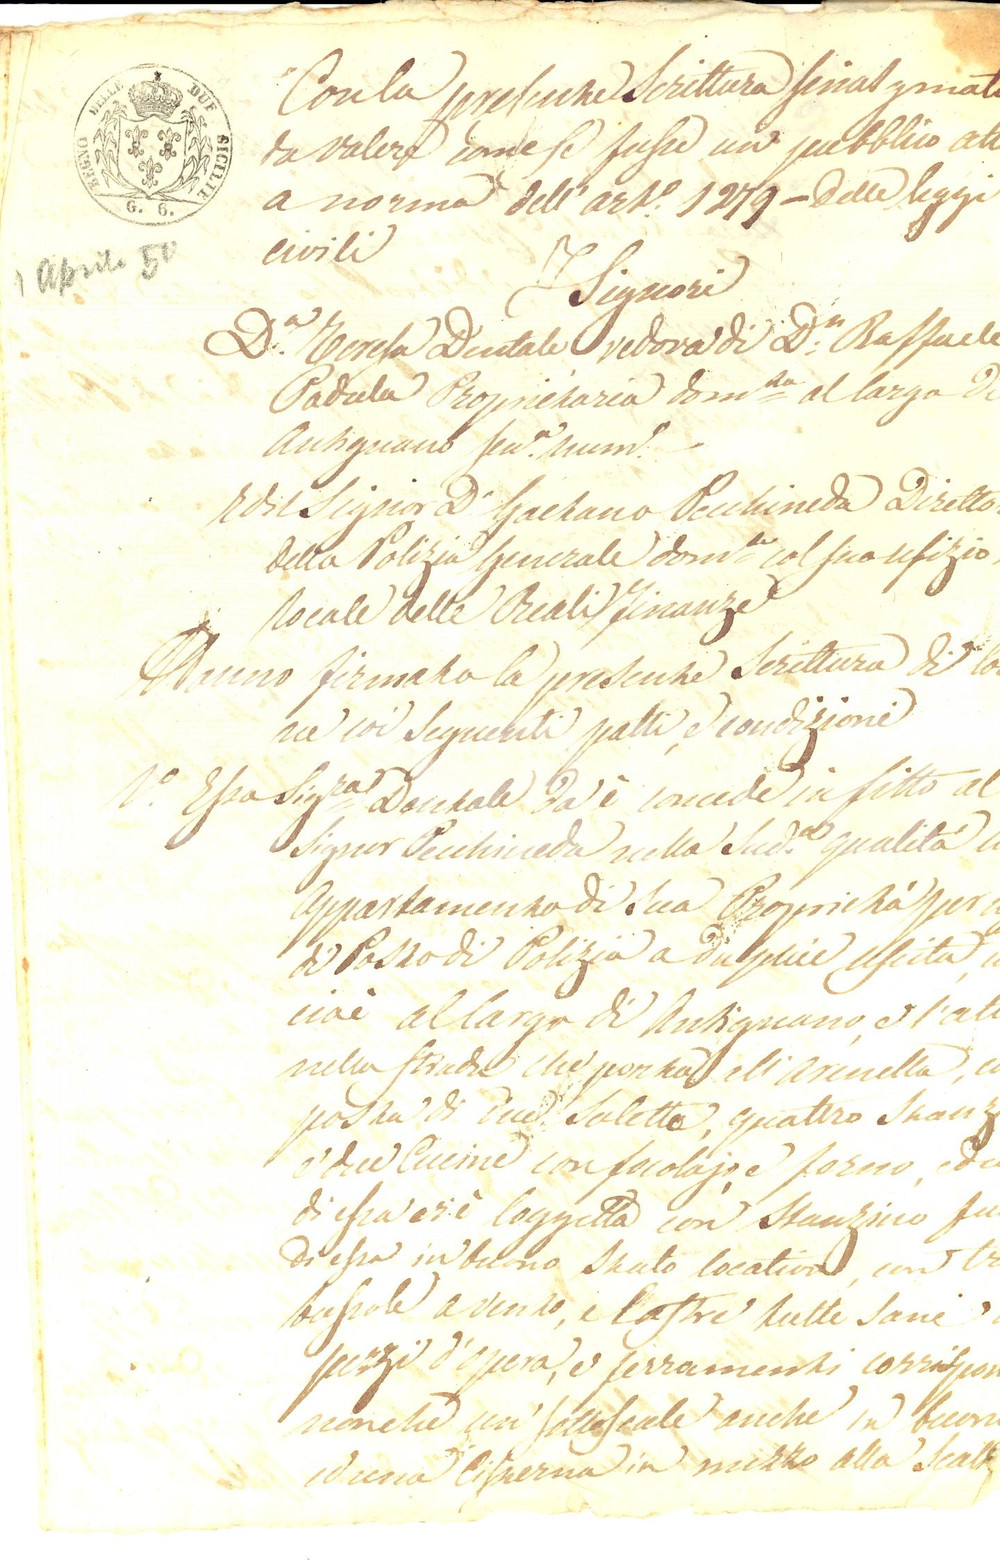 REGNO DELLE DUE SICILIE
G. 6.
1 Aprile 50
Con la presente Scrittura sinalgmati
da valere come se fusse un pubblico att
a norma dell' art.º 1279 - delle leggi
civili
I Signori
D.ª Teresa Dentale vedova di D.n Raffaele
Padula Proprietaria dom.ta al largo di
Antignano sen.ª num.º
ed il Signor D.n Gaetano Pecchineda Diretto
della Polizia Generale dom.to col suo ufizio
locale delle Reali Finanze
Hanno firmato la presente Scrittura di lo
ne coi seguenti patti, e condizioni
1.º Essa Sig.ra Dentale dà e concede in fitto al
Signor Pecchineda nella sud.ª qualità u
appartamento di sua Proprietà per
di Posto di Polizia a duplice uscita, u
cioè al largo di Antignano, e l'alt
nella strada che porta all'Arenella, co
posta di due Salette, quattro Stanz
e due Cucine con focolajo, e forno, ed
di essa vi è loggetta con Stanzino fu
di essa in buono stato locativo, con tr
bussole a vento, e lastre tutte sane
pezzi d'opera, e ferramenti corrispon
nonchè un sottoscale anche in buon
ed una Cisterna in mezzo alla Scal